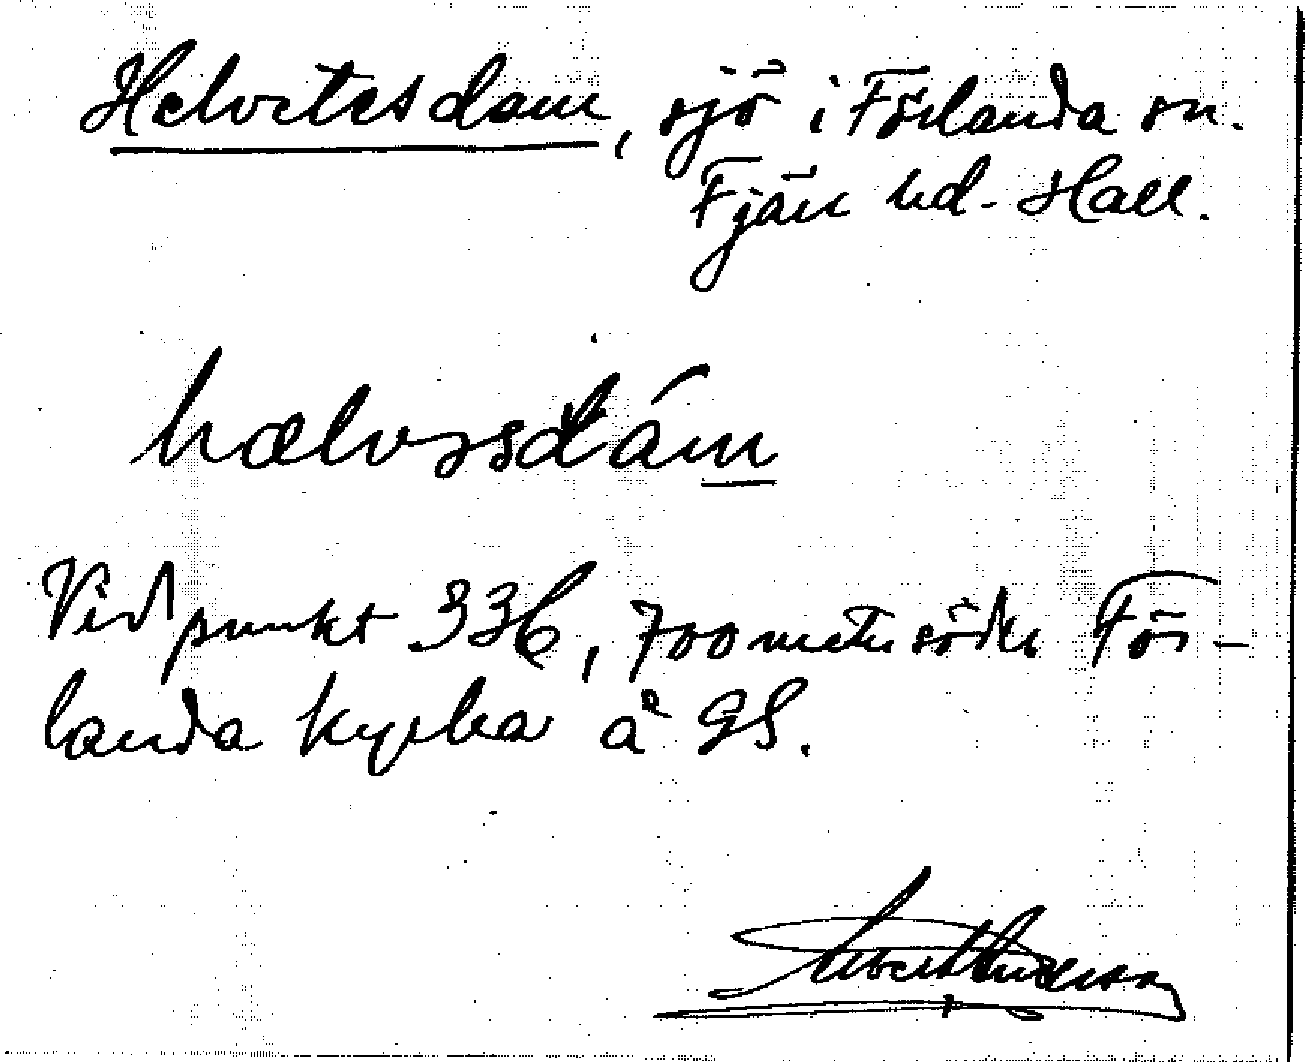 Helvetesdam, sjö i Förlanda sn.
Fjäre hd. Hall.
hælvəsdám
Vid punkt 336, 700 meter söder För-
landa kyrka å GS.